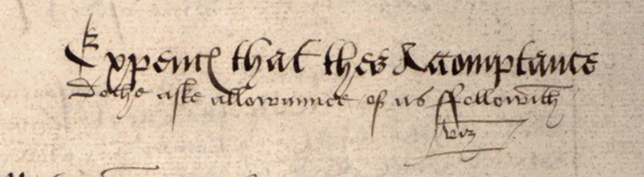 Expences that thes Acomptance
dothe aske allowaunce of as ffollowith
viz